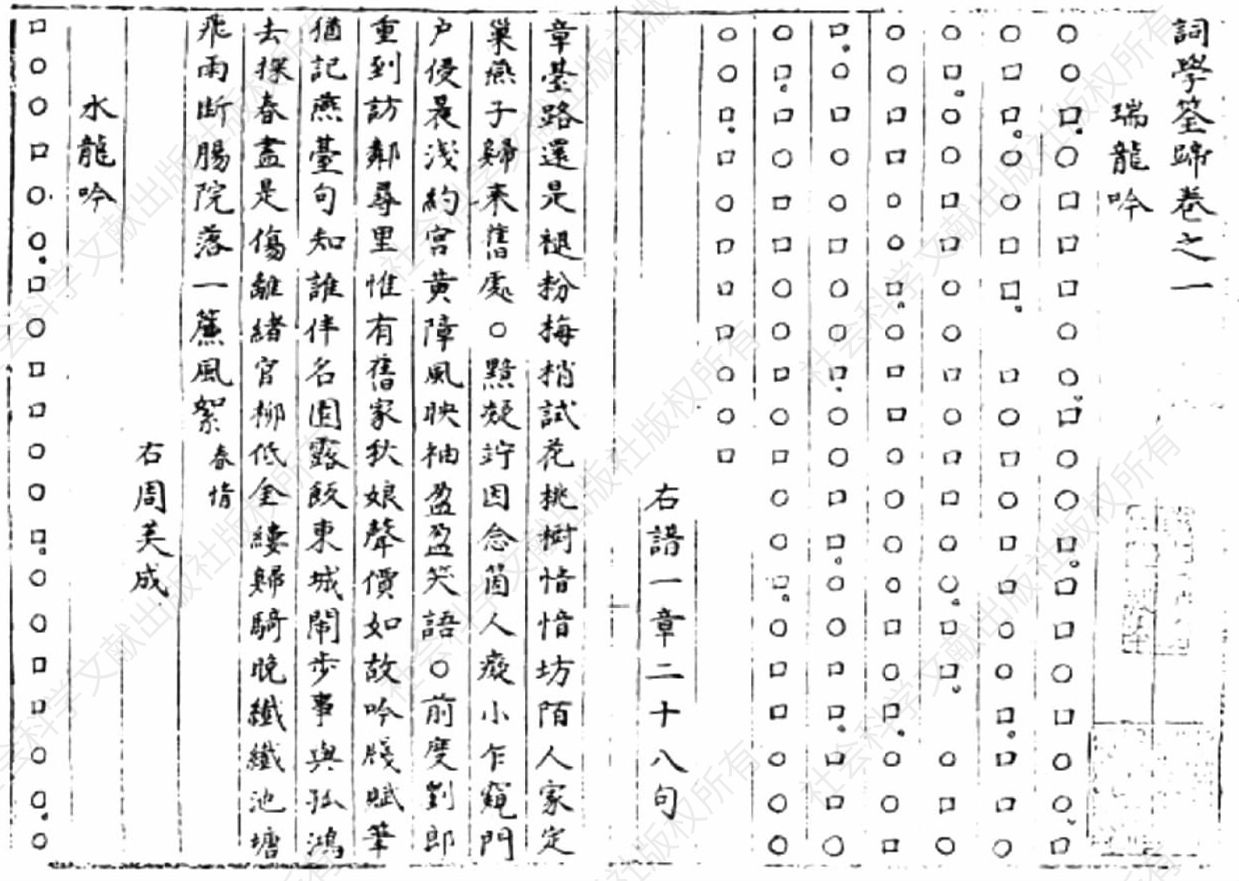 詞學筌蹄卷之一
瑞龍吟
右譜一章二十八句
章臺路還是褪粉梅梢試花桃樹愔愔坊陌人家定
巢燕子歸來舊處○黯凝竚因念箇人癡小乍窺門
户侵晨淺約宮黃障風映袖盈盈笑語○前度劉郎
重到訪鄰尋里惟有舊家秋娘聲價如故吟牋賦筆
猶記燕臺句知誰伴名園露飲東城閒步事與孤鴻
去探春盡是傷離緒官柳低金縷歸騎晚纖纖池塘
飛雨斷腸院落一簾風絮 春情
右周美成
水龍吟
社会科学文献出版社版权所有